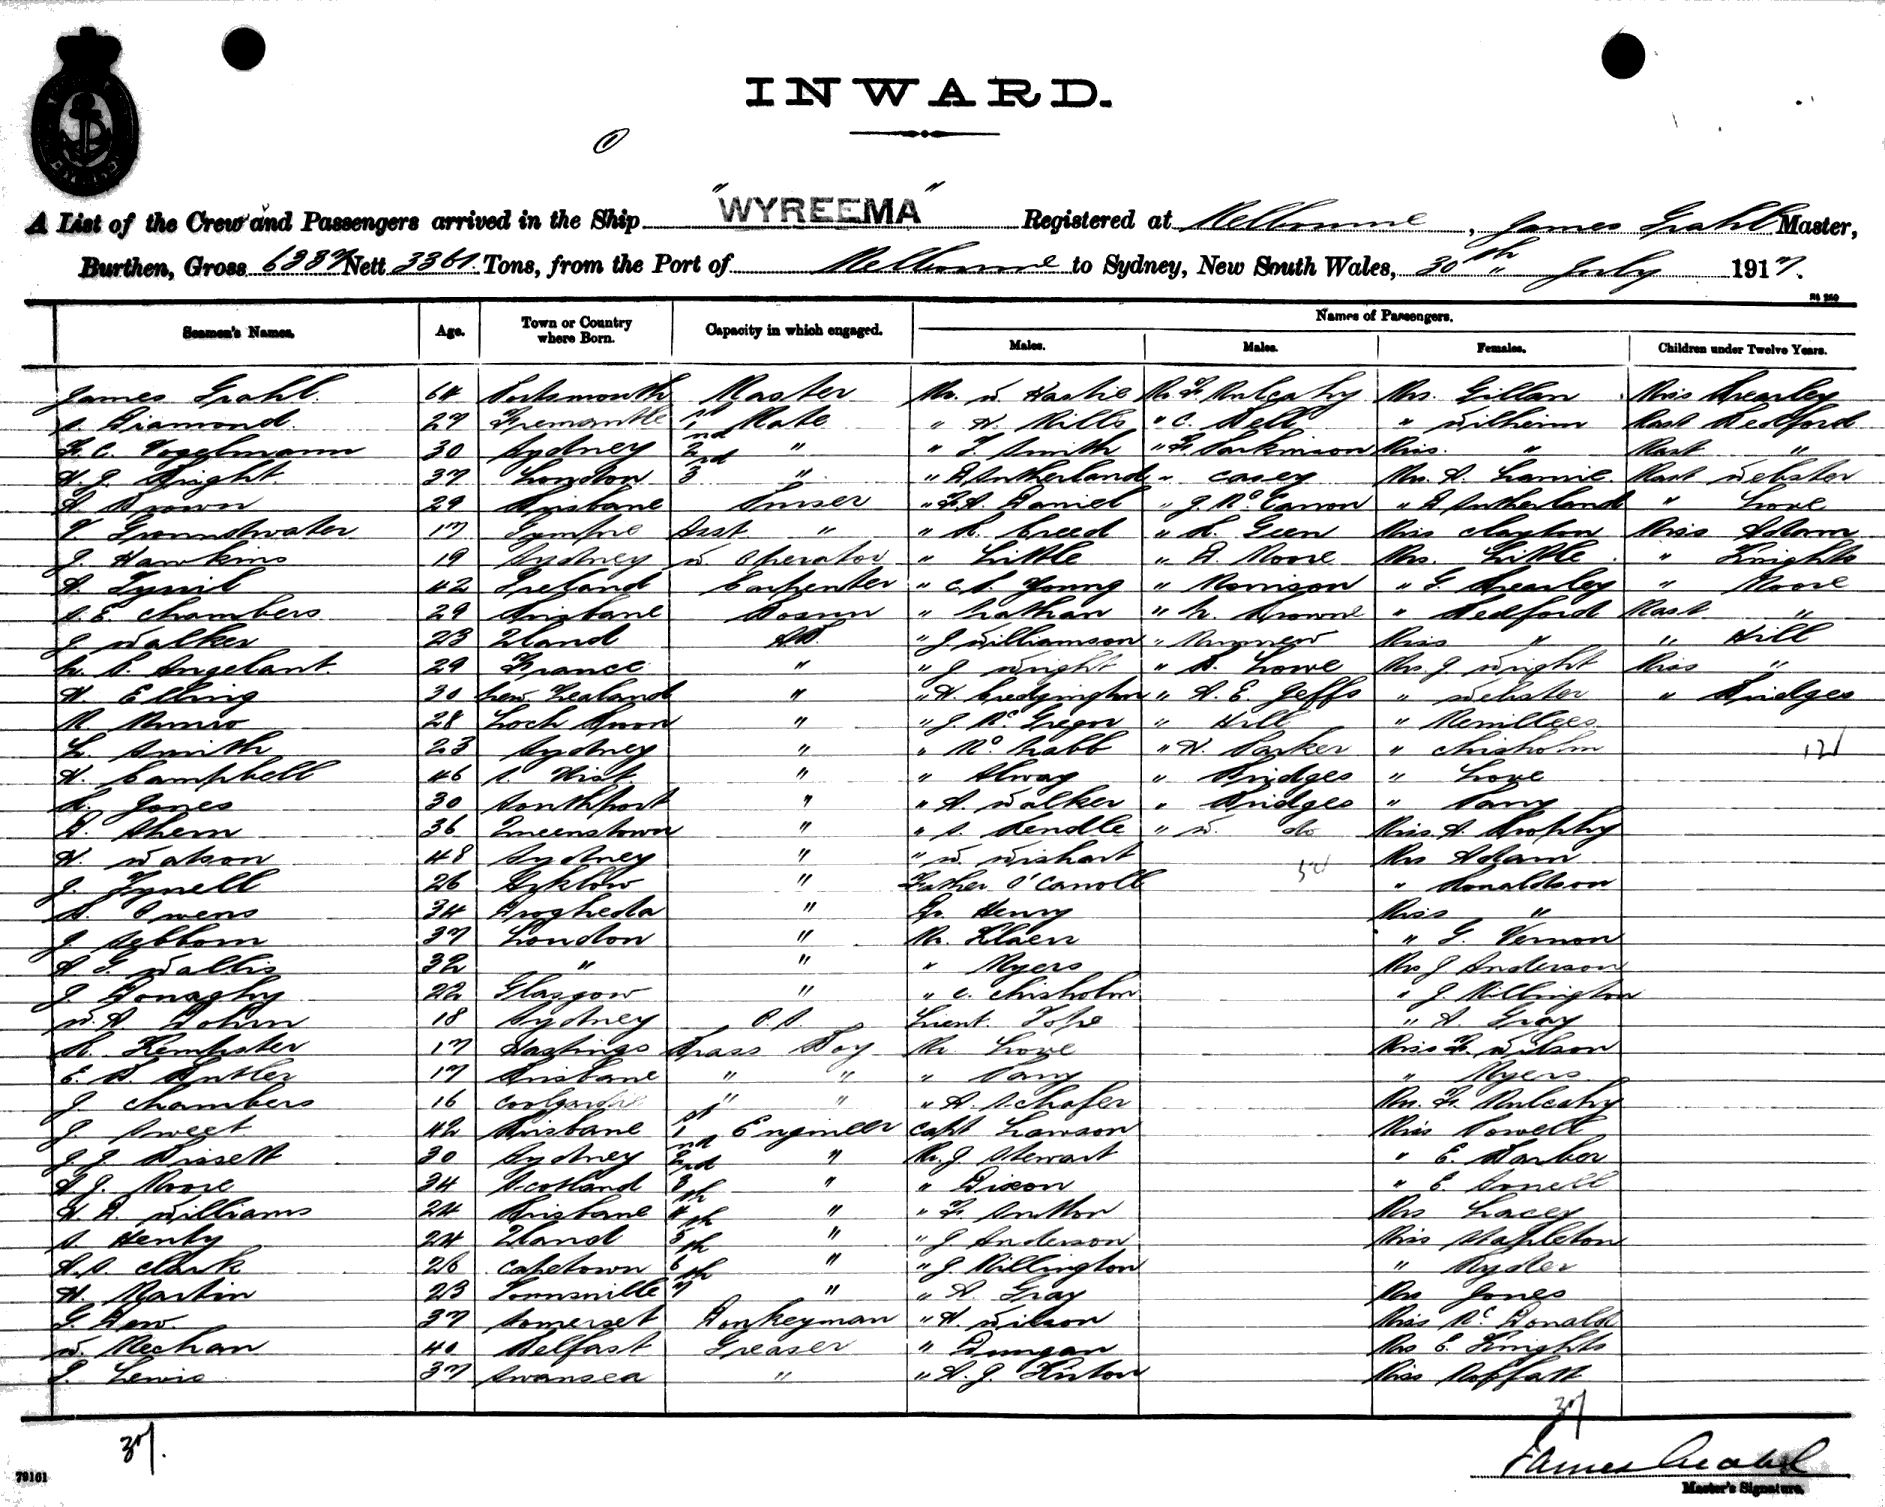 INWARD.
1
A List of the Crew and Passengers arrived in the Ship "WYREEMA" Registered at Melbourne, James Grahl Master,
Burthen, Gross 6338 Nett 3361 Tons, from the Port of Melbourne to Sydney, New South Wales, 30th July 1917.
Seamen's Names. Age. Town or Country where Born. Capacity in which engaged. Names of Passengers.
Males. Males. Females. Children under Twelve Years.
James Grahl 64 Portsmouth Master Mr. W Hastie Mr F Mulcahy Mrs. Gillan Miss Brearley
S Diamond 27 Fremantle 1st Mate " H. Mills " C. Bell " Wilheim Mast Bedford
F. C. Vogelmann 30 Sydney 2nd " " T. Smith " F. Parkinson Miss " Mast "
H. J. Bright 37 London 3rd " " D Sutherland " Casey Mrs. A. Lamie Mast Webster
A Brown 29 Brisbane Purser " F. A. Daniel " J. McCarron " D Sutherland " Love
V Groundwater 17 Gympie Asst " " R. Creed " R. Geen Miss Clayton Miss Adam
J. Hawkins 19 Sydney W Operator " Little " D Moore Mrs. Little " Knights
A. 42 Ireland Carpenter " C. S. Young " Morrison " G. Brearley " Moore
S. E. Chambers 29 Brisbane Bosun " Nathan " N. Browne " Bedford Mast "
J Walker 23 Zland AB. " J Williamson " Miss " " Hill
N. P. Angelant. 29 France " " J Wright " R. Lowe Mrs. J. Wright Miss "
H Elling 30 New Zealand " " H. " A. E. Jeffs " Webster " Bridges
R Munro 28 Loch Broom " " J. McGregor " Hill "
N. Smith 23 Sydney " " McNabb " H. Parker " Chisholm 12/
H. Campbell 46 S. Uist. " " Alway " Bridges " Love
R. Jones 30 Southport " " A. Walker " Bridges "
D. Ahern 36 Queenstown " " S. Kendle " W. do Miss A. Brophy
H. Watson 48 Sydney " " W. Wishart Mrs Adam
J. Tynell 26 Arklow " Father O'Carroll " Ronaldson
R. Owens 34 Drogheda " Dr. Henry Miss "
J 37 London " Mr. Klaen " G. Vernon
A G. Wallis 32 " " " Myers Mrs J Anderson
J. Donaghy 22 Glasgow " " C. Chisholm " J. Millington
W. A. Dohm 18 Sydney O.S. Lieut. Pope " A. Gray
R. Kempster 17 Hastings Brass Boy Mr. Love Miss F. Wilson
E. R. Butler 17 Brisbane " " " " Myers
J. Chambers 16 Coolgardie " " " A. Schafer Mrs. F. Mulcahy
J. Sweet 42 Brisbane 1st Engineer Capt Lawson Miss Powell
J J. Bissett 30 Sydney 2nd " Mr. J. Stewart " E. Barber
D J. Moore 34 Scotland 3rd " " Dixon " E.
H. D. Williams 24 Brisbane 4th " " F. Sutton Mrs Lacey
S. Henty 24 Zland 5th " " J Anderson Miss Stapleton
H. S. Clark 26 Capetown 6th " " J. Millington " Ryder
H. Martin 23 Townsville 7th " " A. Gray Mrs Jones
G. Dew 37 Somerset Donkeyman " H. Wilson Miss McDonald
W. Mechan 40 Belfast Greaser " Duncan Mrs E. Knights
P. Lewis 37 Swansea " " A. J. Hinton Miss Moffatt
37/
37/.
James Grahl
Master's Signature.
79161